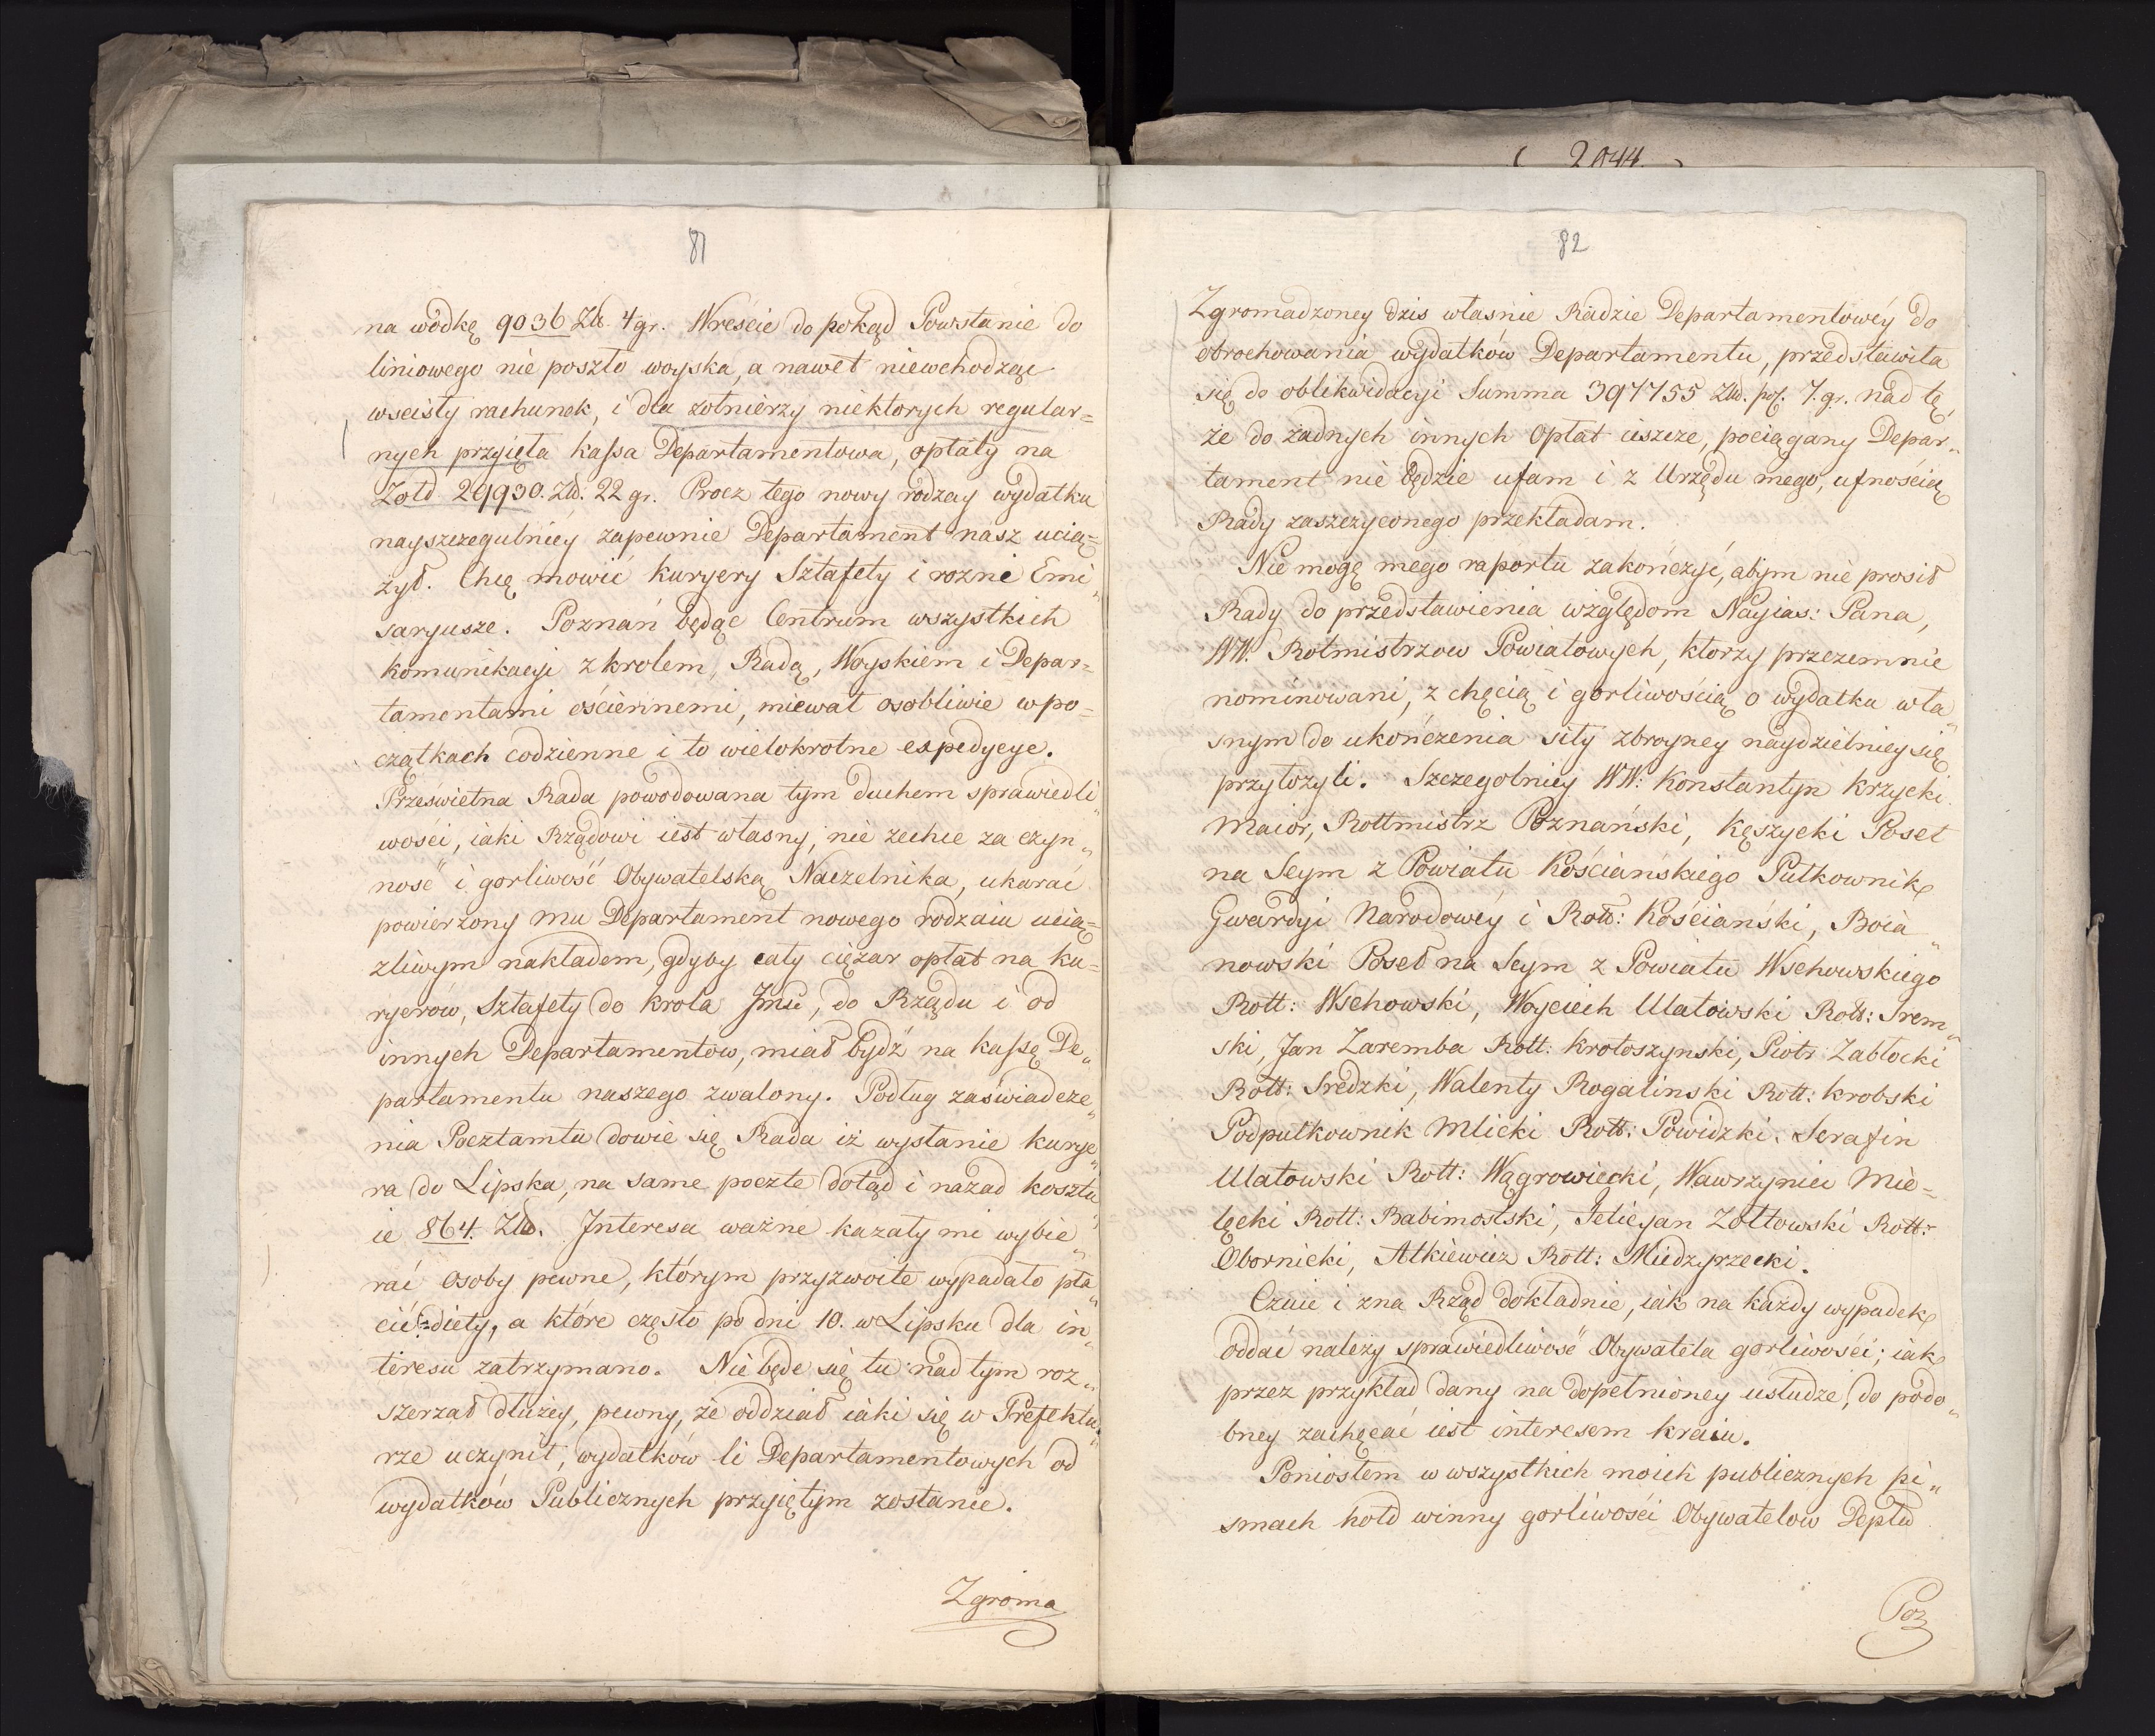 81
na wodkę 9036 Zł. 4 gr. Wreście do pokąd Powstanie do
liniowego nie poszło woyska, a nawet niewchodząc
wscisły rachunek, i dla zołnierzy niektorych regular=
nych przyięta kassa Departamentowa, opłaty na
Zołd 29930. Zł. 22 gr. Procz tego nowy rodzay wydatku
nayszczegulniey zapewnie Departament nasz ucią=
żył. Chcę mowić kuryery Sztafety i rozne Emi„
saryusze. Poznań będąc Centrum wszystkich
komunikacyi z krolem, Radą, Woyskiem i Depar=
tamentami ościennemi, miewał osobliwie w po=
czątkach codzienne i to wielokrotne expedycye.
Prześwietna Rada powodowana tym duchem sprawiedli„
wości, iaki Rządowi iest własny, nie zechce za czyn„
ność i gorliwość Obywatelską Naczelnika, ukarać
powierzony mu Departament nowego rodzaiu ucią=
zliwym nakładem, gdyby cały ciężar opłat na ku=
ryerów, Sztafety do krola Jmci, do Rządu i od
innych Departamentow, miał bydź na kassę De„
partamentu naszego zwalony. Podług zaświadcze„
nia Pocztamtu dowie się Rada iż wysłanie kurye„
ra do Lipska, na same poczte dotąd i nazad kosztu„
ie 864. Zł. Interesa ważne kazały mi wybie„
rać osoby pewne, którym przyzwoite wypadało pła„
cić diety, a które często po dni 10. w Lipsku dla in„
teresu zatrzymano. Nie będe się tu nad tym roz„
szerzał dłużey, pewny, że oddział iaki się w Prefektu„
rze uczynił, wydatków li Departamentowych od
wydatków Publicznych przyiętym zostanie.
Zgroma
2044.
82
Zgromadzoney dzis własnie Radzie Departamentowéy do
obrochowania wydatków Departamentu, przedstawiła
się do oblikwidacyi Summa 397755 Zł. pol. 7. gr. nad tę,
że do żadnych innych Opłat ieszcze, pociągany Depar„
tament nie będzie ufam i z Urzędu mego, ufnością
Rady zaszczyconego przekładam.
Nie mogę mego raportu zakończyć, abym nie prosił
Rady do przedstawienia względom Nayias: Pana,
WW. Rotmistrzow Powiatowych, ktorzy przezemnie
nominowani, z chęcią i gorliwością o wydatku wła„
snym do ukończenia siły zbroyney naydzielniey się
przyłożyli. Szczegolniey WW: Konstantyn Krzycki
Maior, Rottmistrz Poznański, Kęszycki Poseł
na Seym z Powiatu Kościańskiego Pułkownik
Gwardyi Narodowéy i Rott: Kościański, Boia„
nowski Poseł na Seym z Powiatu Wschowskiego
Rott: Wschowski, Woyciech Ulatowski Rott: Srem„
ski, Jan Zaremba Rott: Krotoszynski, Piotr Zabłocki
Rott: Sredzki, Walenty Rogalinski Rott: Krobski
Podpułkownik Mlicki Rott: Powidzki. Serafin
Ulatowski Rott: Wągrowiecki, Wawrzyniec Mie=
lęcki Rott: Babimostski, Felicyan Zołtowski Rott:
Obornicki, Alkiewicz Rott: Miedzyrzecki.
Czuie i zna Rząd dokładnie, iak na każdy wypadek
oddać należy sprawiedliwość Obywatela gorliwości; iak
przez przykład dany na dopełnioney usłudze, do podo„
bney zachęcać iest interesem kraiu.
Poniosłem w wszystkich moich publicznych pi„
smach hołd winny gorliwości Obywatelow Deptu
Poz